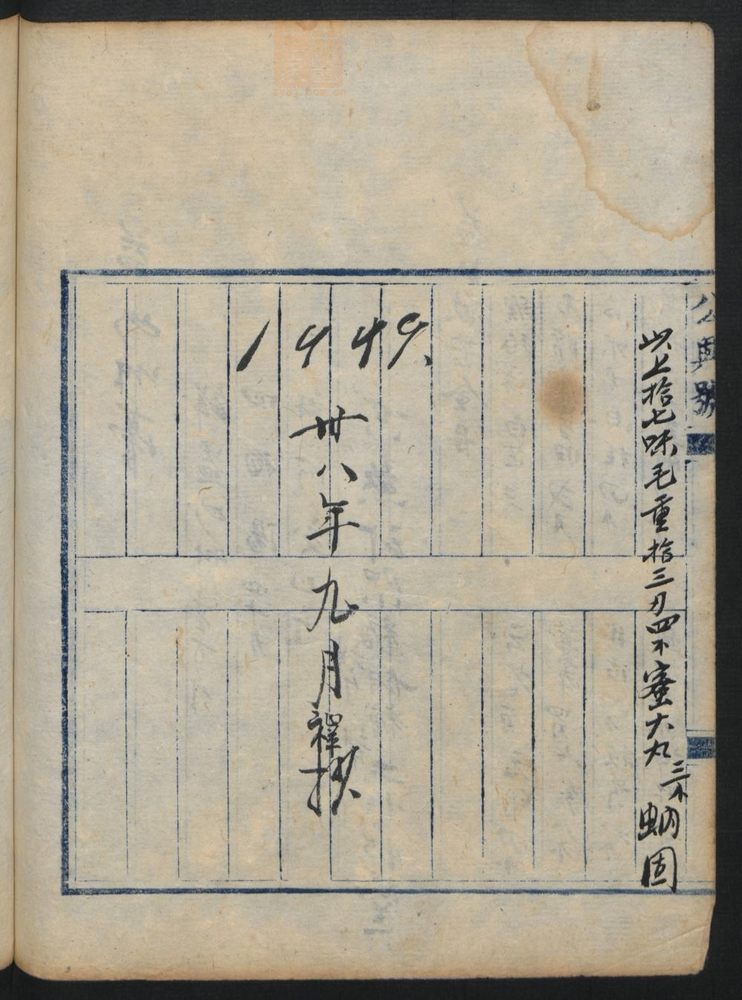 公興號
以上拾七味毛重拾三刃四不蜜大丸三不蚋固
1949.
卅八年九月
抄